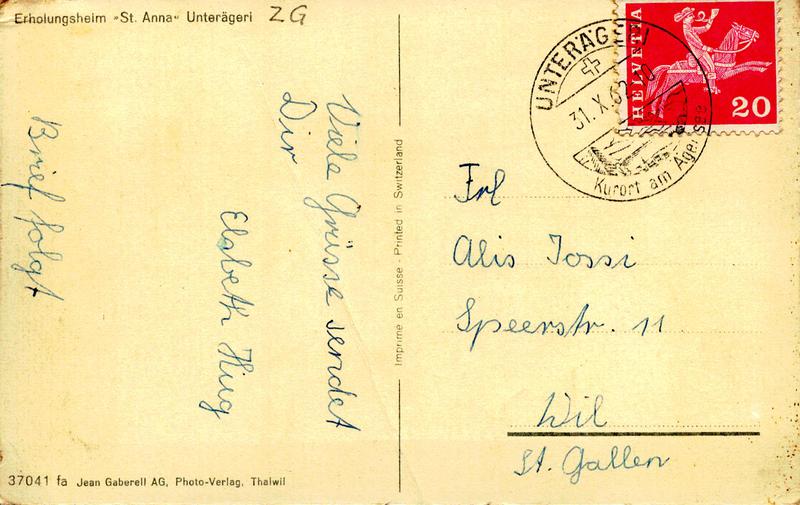 Erholungsheim »St. Anna« Unterägeri
ZG
Viele Grüsse sendet
Dir
Elsbeth Hug
Brief folgt
Imprimé en Suisse - Printed in Switzerland
37041 fa Jean Gaberell AG, Photo-Verlag, Thalwil
UNTERÄGERI
31.X.62-10
Kurort am Ägerisee
HELVETIA
20
Frl
Alis Jossi
Speerstr. 11
Wil
St. Gallen